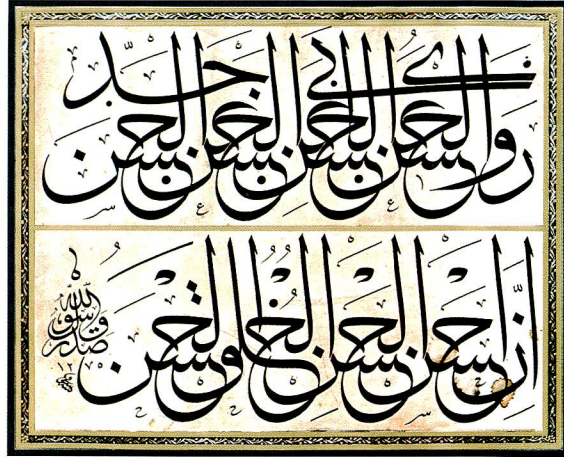 روى الحسن عن الحسن عن ابى الحسن عن جد الحسن
إنّ أحسن الحسن الخُلُق الحسن
صدق رسول الله